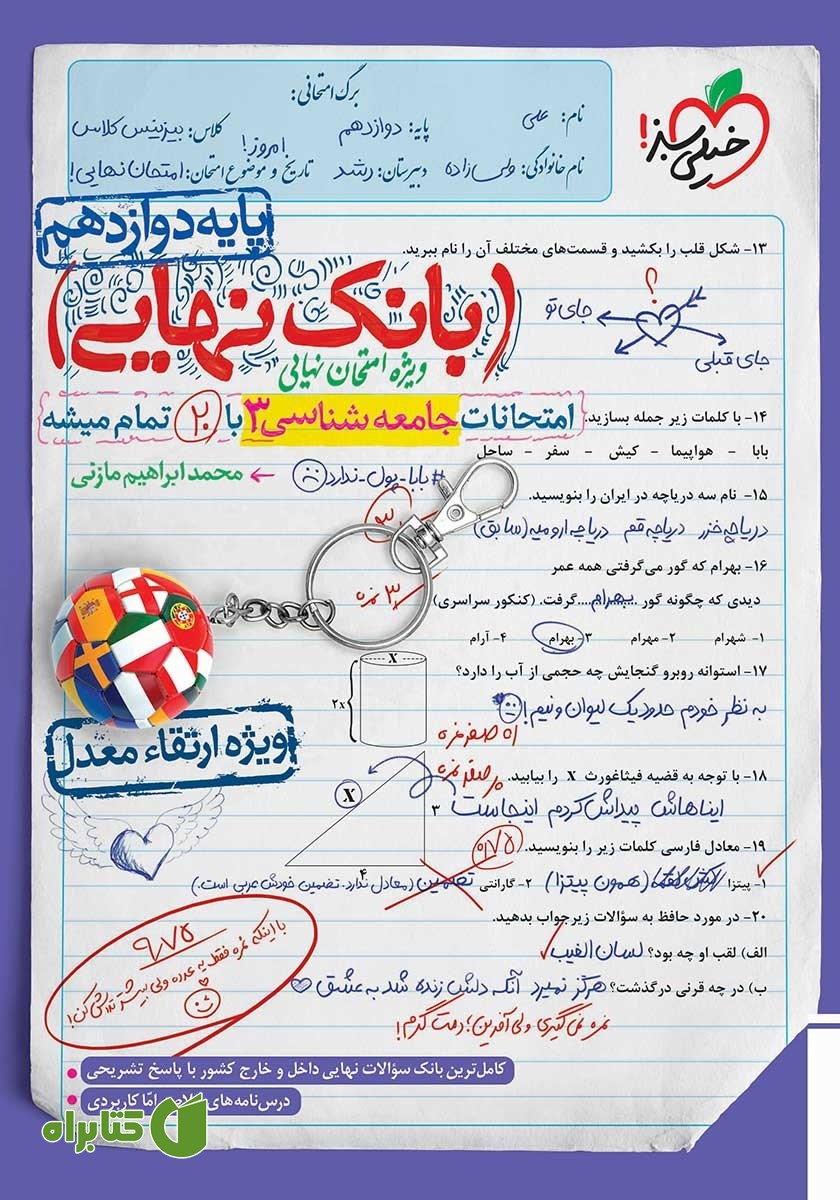 برگ امتحانی:
نام: علی
پایه: دوازدهم
کلاس: بیزینس کلاس
نام خانوادگی: ولی زاده
دبیرستان: رشد
تاریخ و موضوع امتحان: امروز! امتحان نهایی!
خیلی سبز!
پایه دوازدهم
(بانک نهایی)
ویژه امتحان نهایی
امتحانات جامعه شناسی ۳ با ۲۰ تمام میشه
← محمد ابراهیم مازنی
۱۳- شکل قلب را بکشید و قسمت‌های مختلف آن را نام ببرید.
؟
جای تو
جای قبلی
۱۴- با کلمات زیر جمله بسازید.
بابا - هواپیما - کیش - سفر - ساحل
#بابا-پول-ندارد
۱۵- نام سه دریاچه در ایران را بنویسید.
دریاچه خزر دریاچه قم دریاچه ارومیه (سابق)
۱۶- بهرام که گور می‌گرفتی همه عمر
دیدی که چگونه گور ....بهرام....گرفت. (کنکور سراسری)
۳ نمره
۱- شهرام ۲- مهرام ۳- بهرام ۴- آرام
۱۷- استوانه روبرو گنجایش چه حجمی از آب را دارد؟
X
۲x
به نظر خودم حدود یک لیوان و نیم!
اه صفر نمره
ویژه ارتقاء معدل
۱۸- با توجه به قضیه فیثاغورث X را بیابید.
صفر نمره
ایناهاش پیداش کردم اینجاست
X
۳
۴
۱۹- معادل فارسی کلمات زیر را بنویسید.
۰/۷۵
۱- پیتزا (همون پیتزا) ۲- گارانتی تضمین (معادل ندارد. تضمین خودش عربی است.)
۲۰- در مورد حافظ به سؤالات زیر جواب بدهید.
الف) لقب او چه بود؟ لسان الغیب
ب) در چه قرنی درگذشت؟ هرگز نمیرد آنکه دلش زنده شد به عشق
نمره نمی‌گیری ولی آفرین؛ دمت گرم!
۹/۷۵
با اینکه نمره فقط یه عدده ولی بیشتر تلاش کن!
کامل‌ترین بانک سؤالات نهایی داخل و خارج کشور با پاسخ تشریحی
درس‌نامه‌های امّا کاربردی
کتابراه